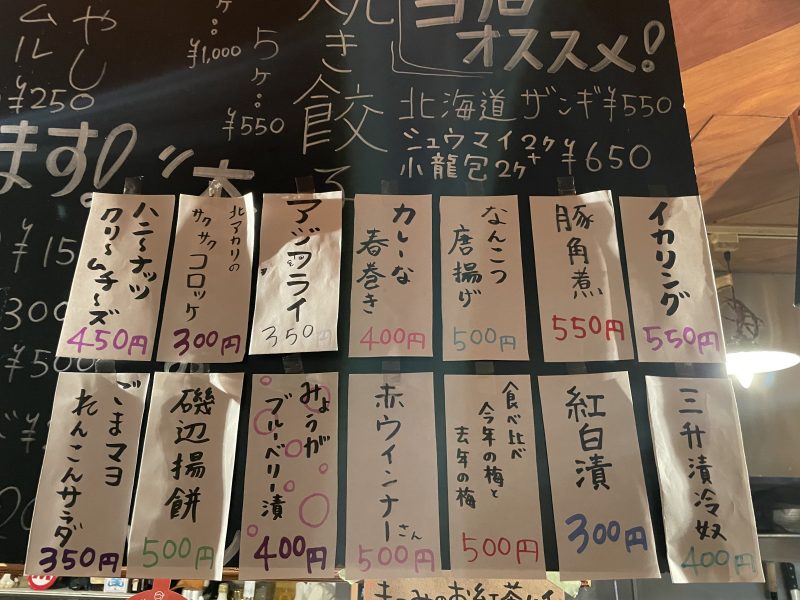 当店
オススメ!
北海道ザンギ¥550
シュウマイ2ケ+
小龍包2ケ
¥650
焼き餃子
5ケ…
¥550
¥1,000
¥250
ます!
イカリング
550円
豚角煮
550円
なんこつ
唐揚げ
500円
カレーな
春巻き
400円
アジフライ
350円
北アカリの
サクサク
コロッケ
300円
ハニ〜ナッツ
クリ〜ムチ〜ズ
450円
三升漬冷奴
400円
紅白漬
300円
食べ比べ
今年の梅と
去年の梅
500円
赤ウインナーさん
500円
みょうが
ブルーベリー漬
400円
磯辺揚餅
500円
ごまマヨ
れんこんサラダ
350円